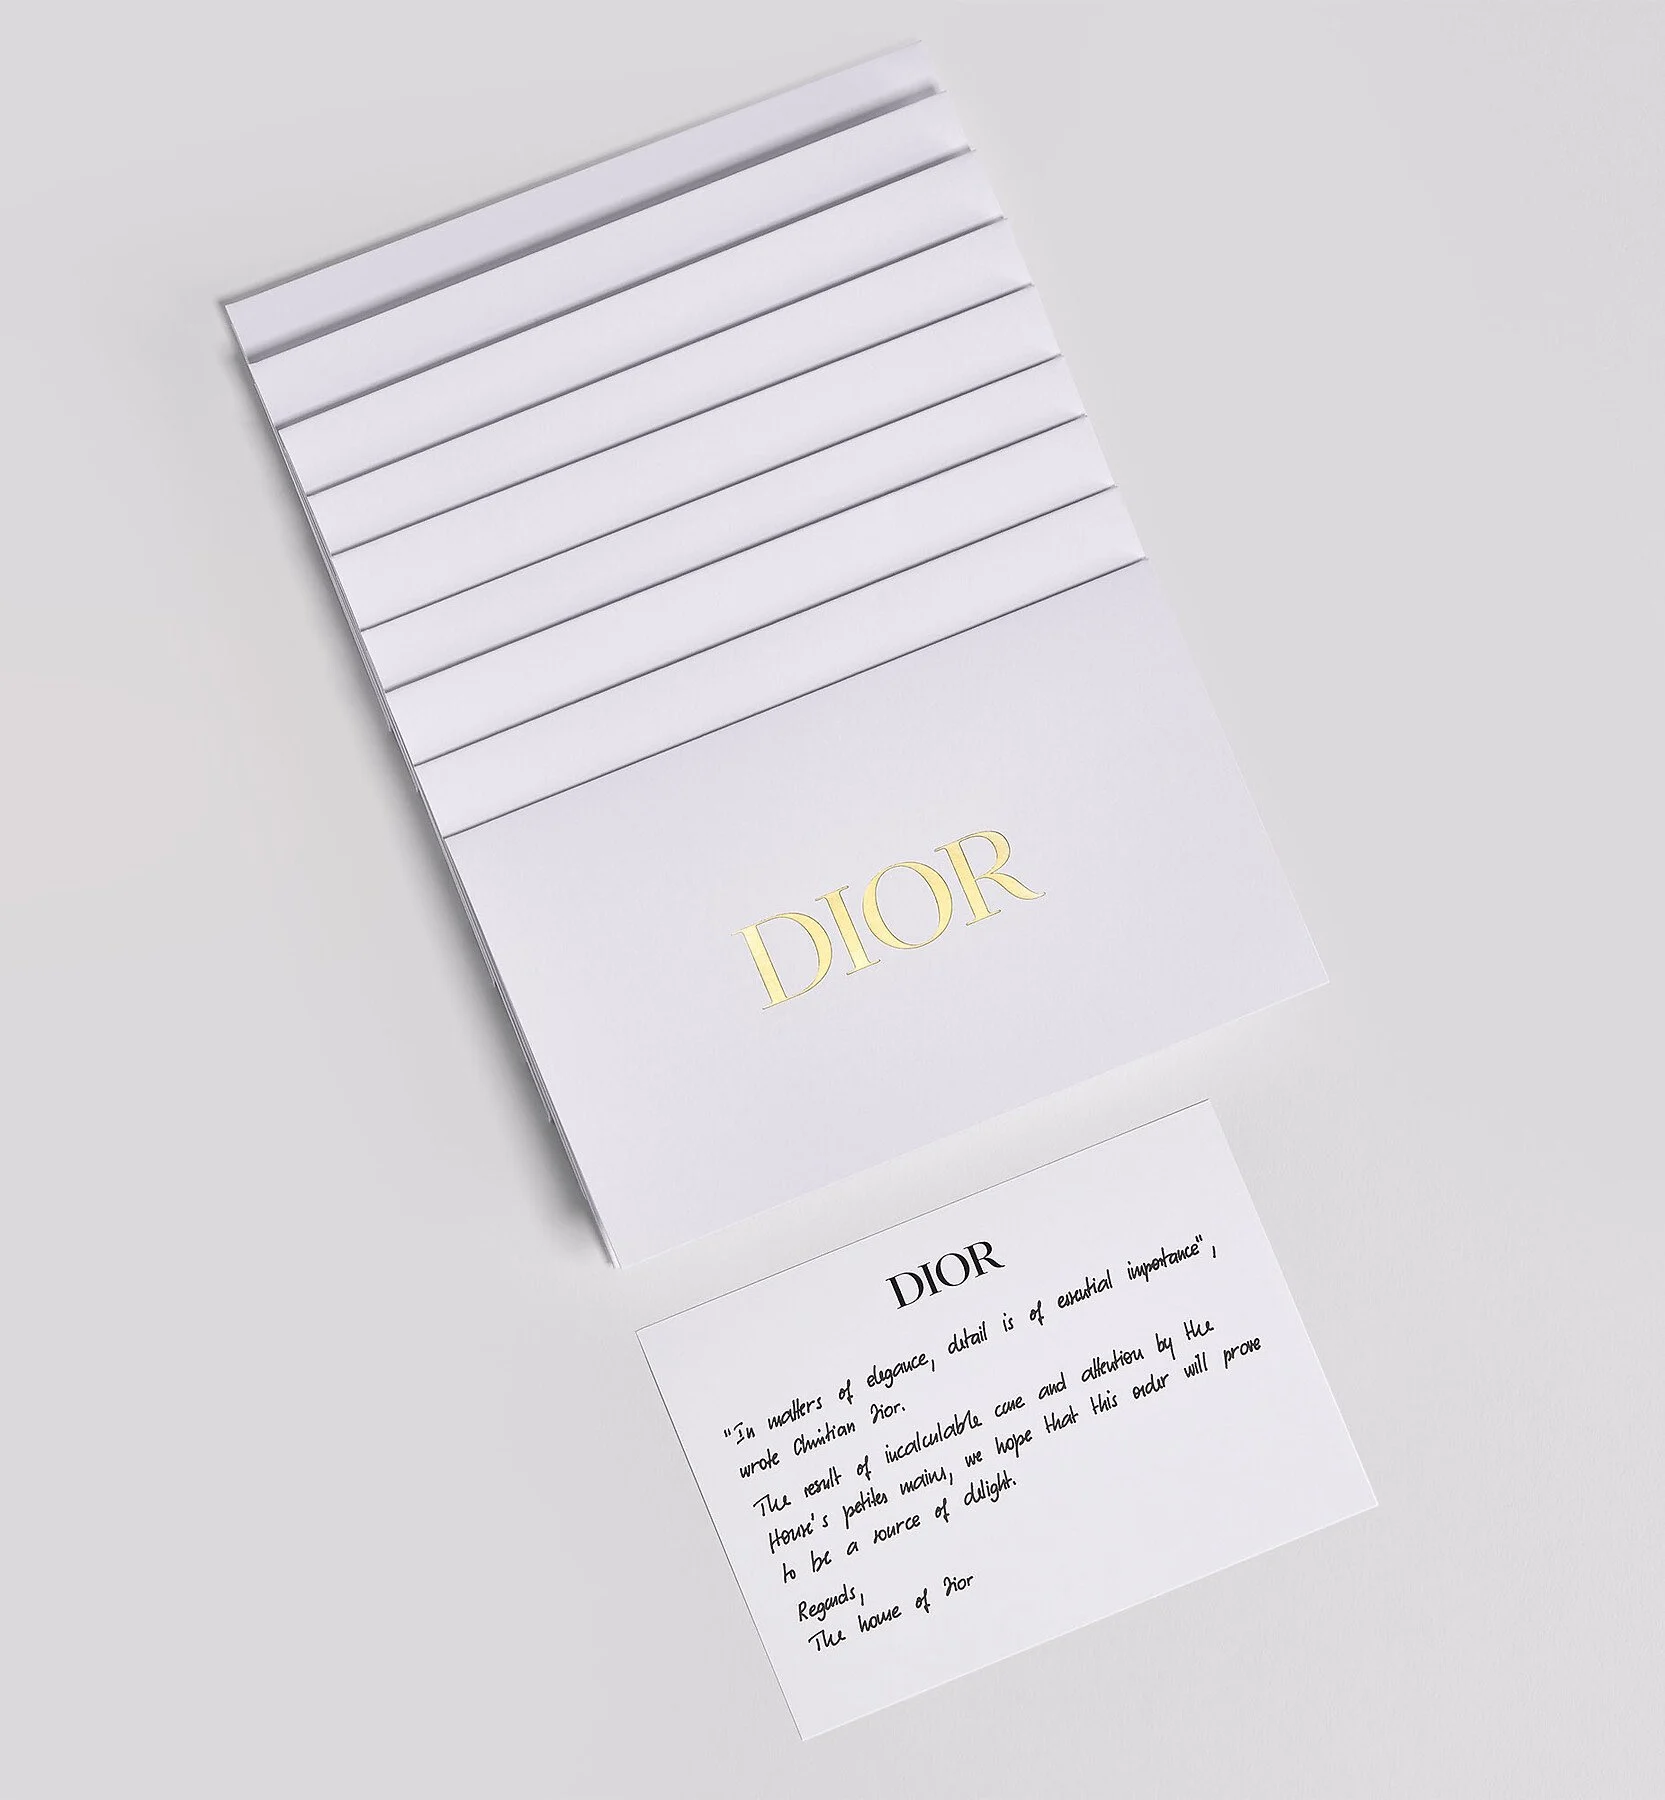 DIOR
DIOR
"In matters of elegance, detail is of essential importance",
wrote Christian Dior.
The result of incalculable care and attention by the
House's petites mains, we hope that this order will prove
to be a source of delight.
Regards,
The house of Dior